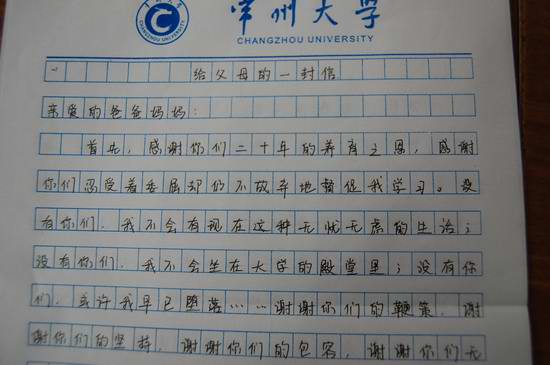 常州大学
CHANGZHOU UNIVERSITY
CHANGZHOU UNIVERSITY
给父母的一封信
亲爱的爸爸妈妈：
首先，感谢你们二十年的养育之恩，感谢
你们忍受着委屈却仍不放弃地督促我学习。没
有你们，我不会有现在这种无忧无虑的生活；
没有你们，我不会坐在大学的殿堂里；没有你
们，或许我早已堕落……谢谢你们的鞭策，谢
谢你们的坚持，谢谢你们的包容，谢谢你们无